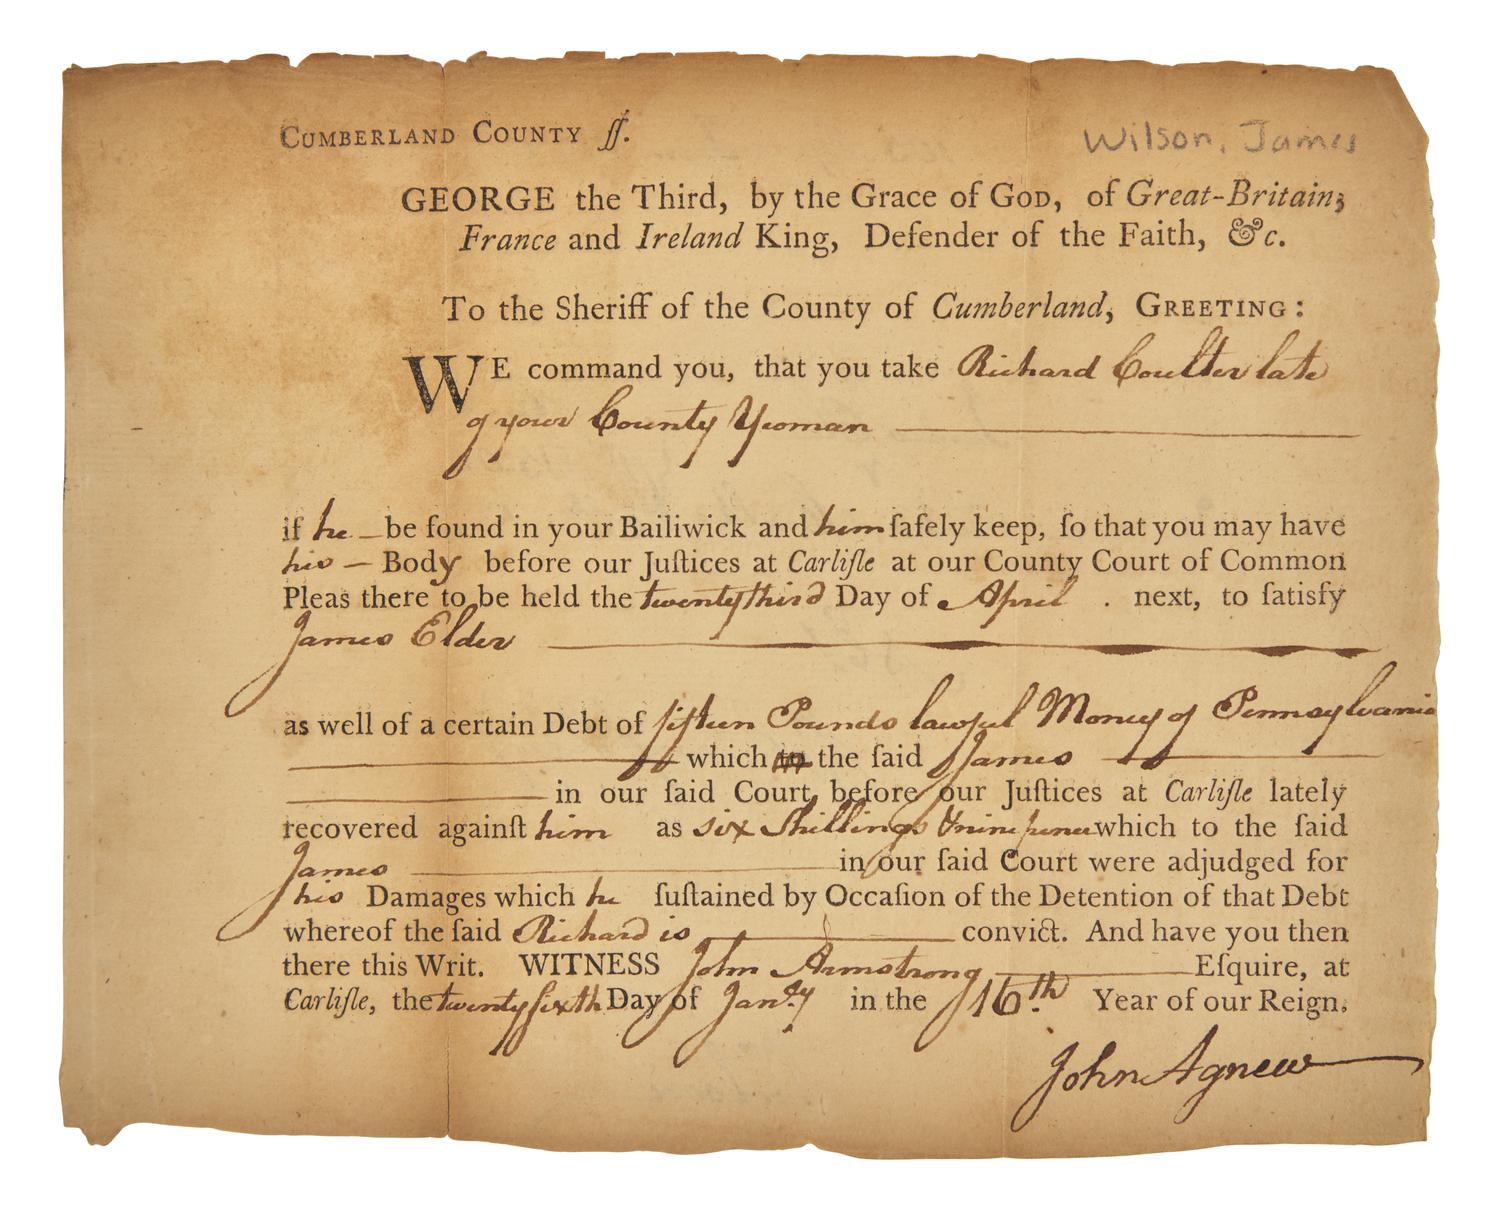 CUMBERLAND COUNTY ſſ.
Wilson, James
GEORGE the Third, by the Grace of GOD, of Great-Britain,
France and Ireland King, Defender of the Faith, &c.
To the Sheriff of the County of Cumberland, GREETING:
WE command you, that you take Richard Coulter late
of your County Yeoman
if he be found in your Bailiwick and him ſafely keep, ſo that you may have
his Body before our Juſtices at Carliſle at our County Court of Common
Pleas there to be held the twenty third Day of April next, to ſatisfy
James Elder
as well of a certain Debt of fifteen Pounds lawful Money of Pennsylvania
which to the ſaid James
in our ſaid Court, before our Juſtices at Carliſle lately
recovered againſt him as six Shillings & nine pence which to the ſaid
James in our ſaid Court were adjudged for
his Damages which he ſuſtained by Occaſion of the Detention of that Debt
whereof the ſaid Richard is convict. And have you then
there this Writ. WITNESS John Armstrong Eſquire, at
Carliſle, the twenty ſixth Day of Jan.ry in the 16th Year of our Reign.
John Agnew